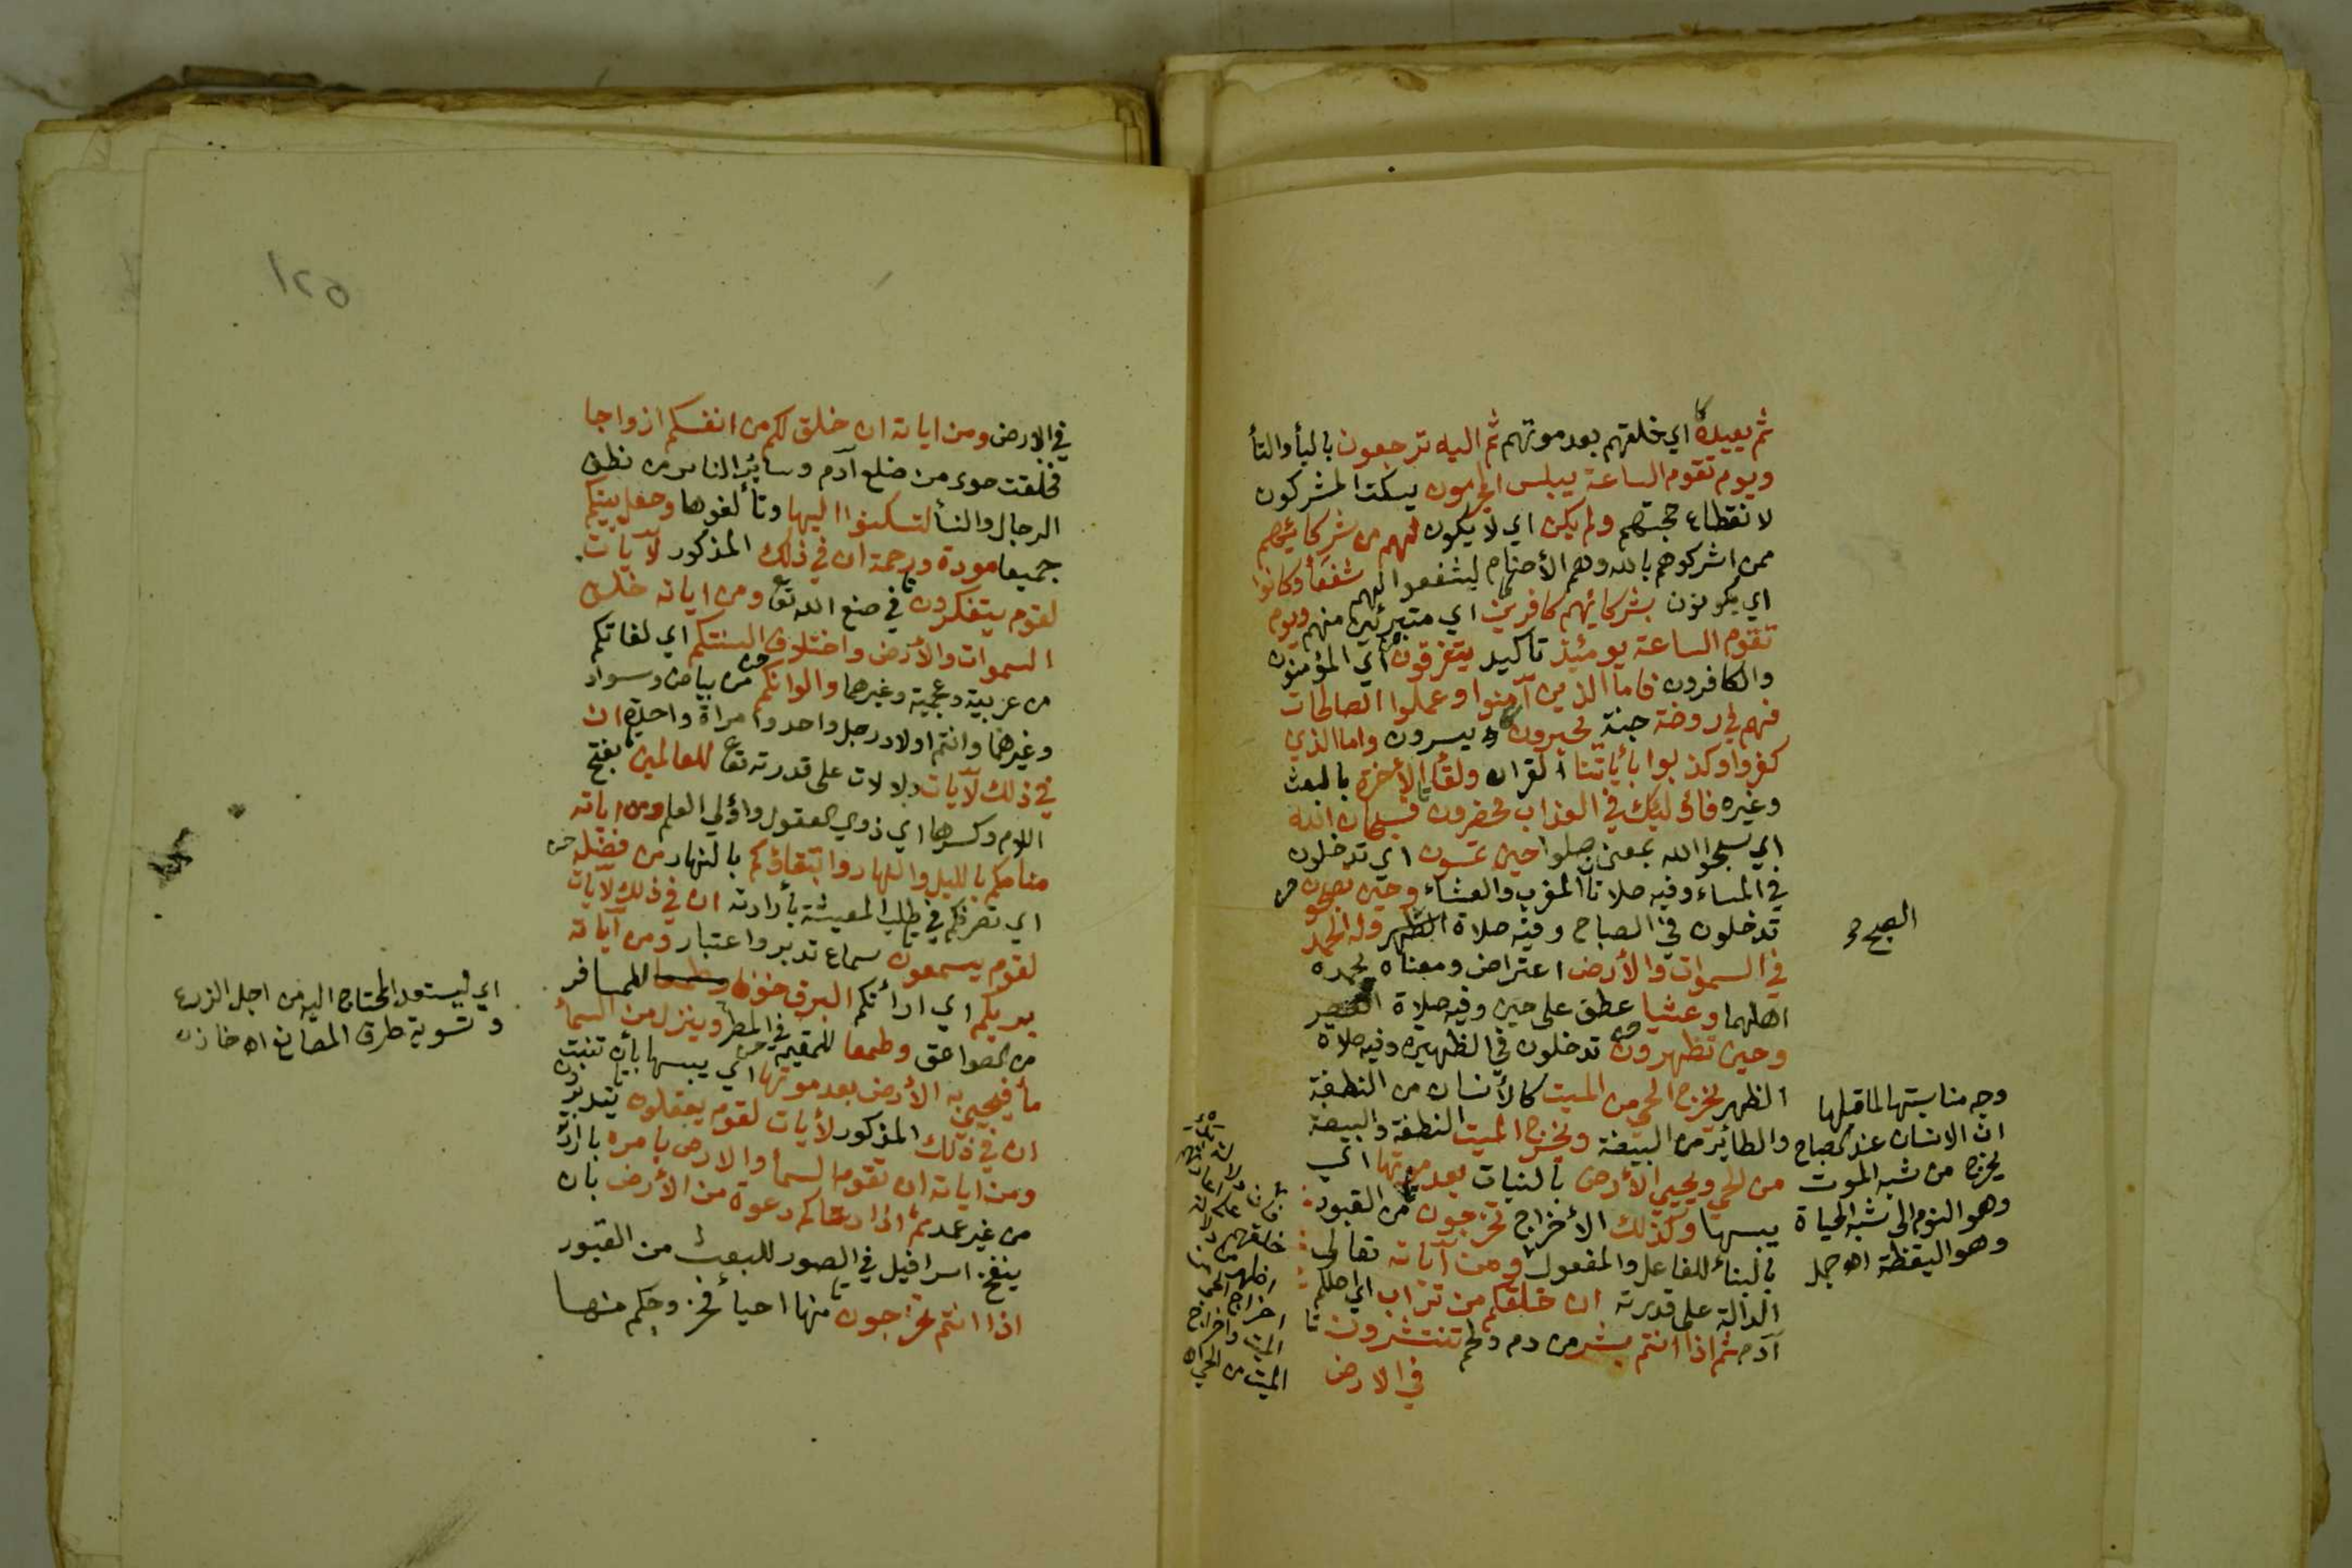 ثم يعيده اي خلقهم بعد موتهم ثم اليه ترجعون باليأ والتأ
ويوم تقوم الساعة يبلس المجرمون يسكت المشركون
لانقطاع حجتهم ولم يكن اي لا يكون لهم من شركائهم
ممن اشركوهم بالله وهم الأصنام ليشفعوا لهم شفعأ وكانوا
اي يكونون بشركائهم كافرين اي متبرئين منهم ويوم
تقوم الساعة يومئذ تاكيد يتفرقون اي المؤمنون
والكافرون فاما الذين آمنوا وعملوا الصالحات
فهم في روضة جنة يحبرون يسرون واما الذي
كفروا وكذبوا بأياتنا القران ولقأ الأخرة بالبعث
وغيره فاولئك في العذاب محضرون فسبحان الله
اي سبحوا الله بمعنى صلوا حين تمسون اي تدخلون
في المساء وفيه صلاتا المغرب والعشاء وحين تصبحون
تدخلون في الصباح وفيه صلاة وله الحمد
الصبح
في السموات والأرض اعتراض ومعناه يحمده
اهلهما وعشيا عطف على حين وفيه صلاة العصر
وحين تظهرون تدخلون في الظهيرة وفيه صلاة
الظهر يخرج الحي من الميت كالأنسان من النطفة
والطائر من البيضة ويخرج الميت النطفة والبيضة
من الحي ويحيي الأرض بالنبات بعد موتها اي
يبسها وكذلك الأخراج تخرجون من القبور
بالبناء للفاعل والمفعول ومن آياته تعالى
الدالة على قدرته ان خلقكم من تراب اي اصلكم
آدم ثم اذا انتم بشر من دم ولحم تنتشرون
في الارض
وجه مناسبتها لما قبلها
ان الانسان عند الصباح
يخرج من شبه الموت
وهو النوم الى شبه الحياة
وهو اليقظة اه جمل
خلقهم
اخراج الحي من
الميت واخراج
الميت من الحي اه
١٢٥
في الارض ومن اياته ان خلق لكم من انفسكم ازواجا
فخلقت حوى من ضلع آدم وسائر الناس من نطف
الرجال والنسأ لتسكنوا اليها وتألفوها وجعل بينكم
جميعا مودة ورحمة ان في ذلك المذكور لآيات
لقوم يتفكرون في صنع الله تع ومن اياته خلق
السموات والأرض واختلاف السنتكم اي لغاتكم
من عربية وعجمية وغيرهما والوانكم من بياض وسواد
وغيرهما وانتم اولاد رجل واحد وامراة واحدة ان
في ذلك لآيات دلالات على قدرته تع للعالمين بفتح
اللام وكسرها اي ذوي العقول واولي العلم ومن اياته
منامكم بالليل والنهار وابتغاؤكم بالنهار من فضله
اي تصرفكم في طلب المعيشة بأرادته ان في ذلك لآيات
لقوم يسمعون سماع تدبر واعتبار ومن آياته
يريكم اي ارأتكم البرق خوفا للمسافر
من الصواعق وطمعا للمقيم في المطر وينزل من السمأ
مأ فيحيي به الأرض بعد موتها اي يبسها بأن تنبت
ان في ذلك المذكور لأيات لقوم يعقلون يتدبرون
ومن اياته ان تقوم السمأ والارض بامره بارادته
من غير عمد ثم اذا دعاكم دعوة من الأرض بان
ينفخ اسرافيل في الصور للبعث من القبور
اذا انتم تخرجون منها احيأ فخروجكم منها
اي ليستعد المحتاج اليه من اجل الزرع
وتسوية طرق المصانع اه خازن